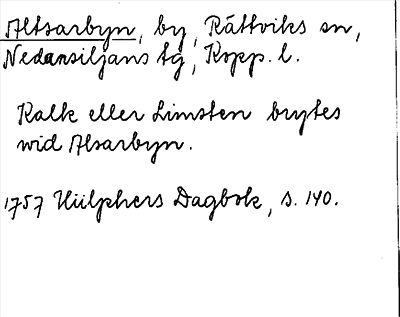 Altsarbyn, by, Rättviks sn,
Nedansiljans tg, Kopp. l.
Kalk eller Limsten brytes
wid Alsarbyn.
1757 Hülphers Dagbok, s. 140.